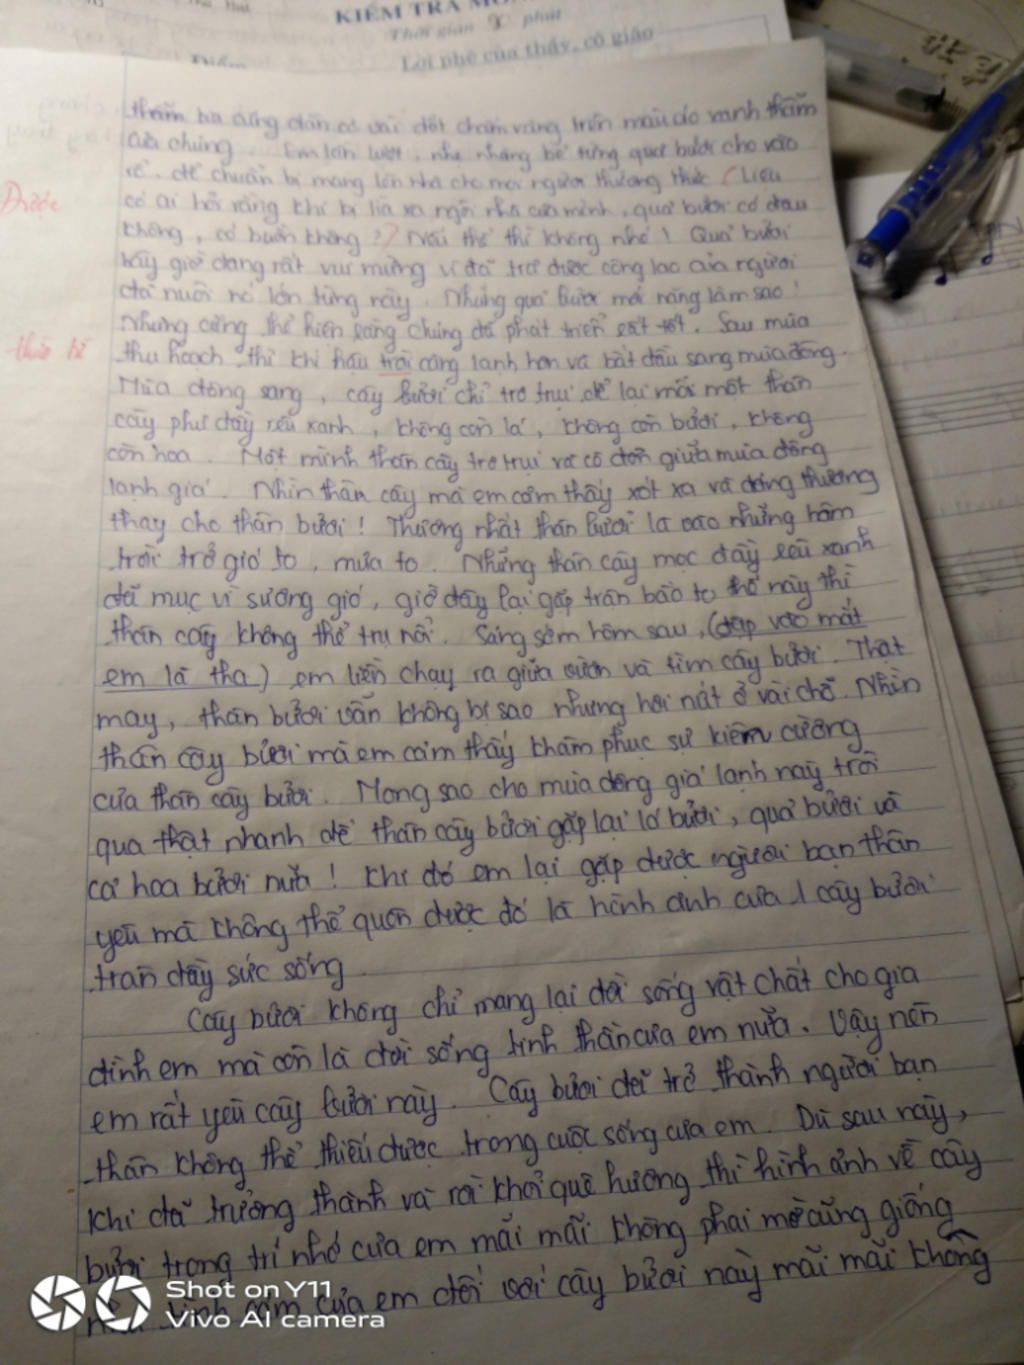 KIỂM TRA MÔN
Thời gian phút
Điểm Lời phê của thầy, cô giáo
thẫm có vài đốt chấm vàng trên màu áo xanh thẫm
của chúng. Em lần lượt, nhẹ nhàng bê từng quả bưởi cho vào
rổ, để chuẩn bị mang lên nhà cho mọi người thưởng thức (Liệu
Được
có ai hỏi rằng khi bị lìa xa ngôi nhà của mình, quả bưởi có đau
không, có buồn không?) Nói thế thì không nhé! Quả bưởi
bây giờ đang rất vui mừng vì đã trả được công lao của người
đã nuôi nó lớn từng này. Nhưng quả bưởi mới nặng làm sao!
Nhưng cũng thể hiện rằng chúng đã phát triển rất tốt. Sau mùa
thu hoạch thì khí hậu trời càng lạnh hơn và bắt đầu sang mùa đông.
Mùa đông sang, cây bưởi chỉ trơ trụi để lại mỗi một thân
cây phủ đầy rêu xanh, không còn lá, không còn bưởi, không
còn hoa. Một mình thân cây trơ trụi và cô đơn giữa mùa đông
lạnh giá. Nhìn thân cây mà em cảm thấy xót xa và đáng thương
thay cho thân bưởi! Thương nhất thân bưởi là vào những hôm
trời trở gió to, mưa to. Những thân cây mọc đầy rêu xanh
đã mục vì sương gió, giờ đây lại gặp trận bão to thế này thì
thân cây không thể trụ nổi. Sáng sớm hôm sau, (đập vào mắt
em là tha) em liền chạy ra giữa vườn và tìm cây bưởi. Thật
may, thân bưởi vẫn không bị sao nhưng hơi nát ở vài chỗ. Nhìn
thân cây bưởi mà em cảm thấy khâm phục sự kiêm cường
của thân cây bưởi. Mong sao cho mùa đông giá lạnh này trôi
qua thật nhanh để thân cây bưởi gặp lại lá bưởi, quả bưởi và
cả hoa bưởi nữa! Khi đó em lại gặp được người bạn thân
yêu mà không thể quên được đó là hình ảnh của 1 cây bưởi
tràn đầy sức sống.
Cây bưởi không chỉ mang lại đời sống vật chất cho gia
đình em mà còn là đời sống tinh thần của em nữa. Vậy nên
em rất yêu cây bưởi này. Cây bưởi đã trở thành người bạn
thân không thể thiếu được trong cuộc sống của em. Dù sau này,
khi đã trưởng thành và rời khỏi quê hương thì hình ảnh về cây
bưởi trong trí nhớ của em mãi mãi không phai mờ cũng giống
như tình cảm của em đối với cây bưởi này mãi mãi không
Shot on Y11
Vivo AI camera